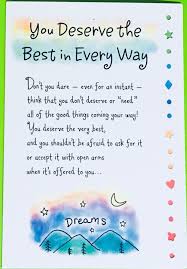 You Deserve the
Best in Every Way
Don't you dare — even for an instant —
think that you don't deserve or "need"
all of the good things coming your way!
You deserve the very best,
and you shouldn't be afraid to ask for it
or accept it with open arms
when it's offered to you...
Dreams